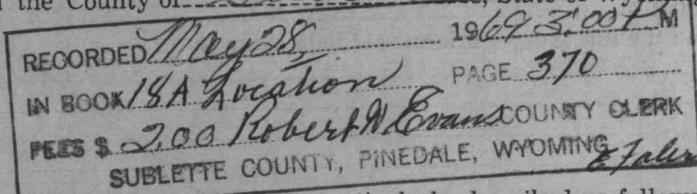 the County of
RECORDED May 28, 1969 3:00 P M
IN BOOK 18A Location PAGE 370
FEES $ 2.00 Robert W Evans COUNTY CLERK
SUBLETTE COUNTY, PINEDALE, WYOMING